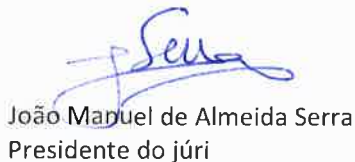 Serra
João Manuel de Almeida Serra
Presidente do júri